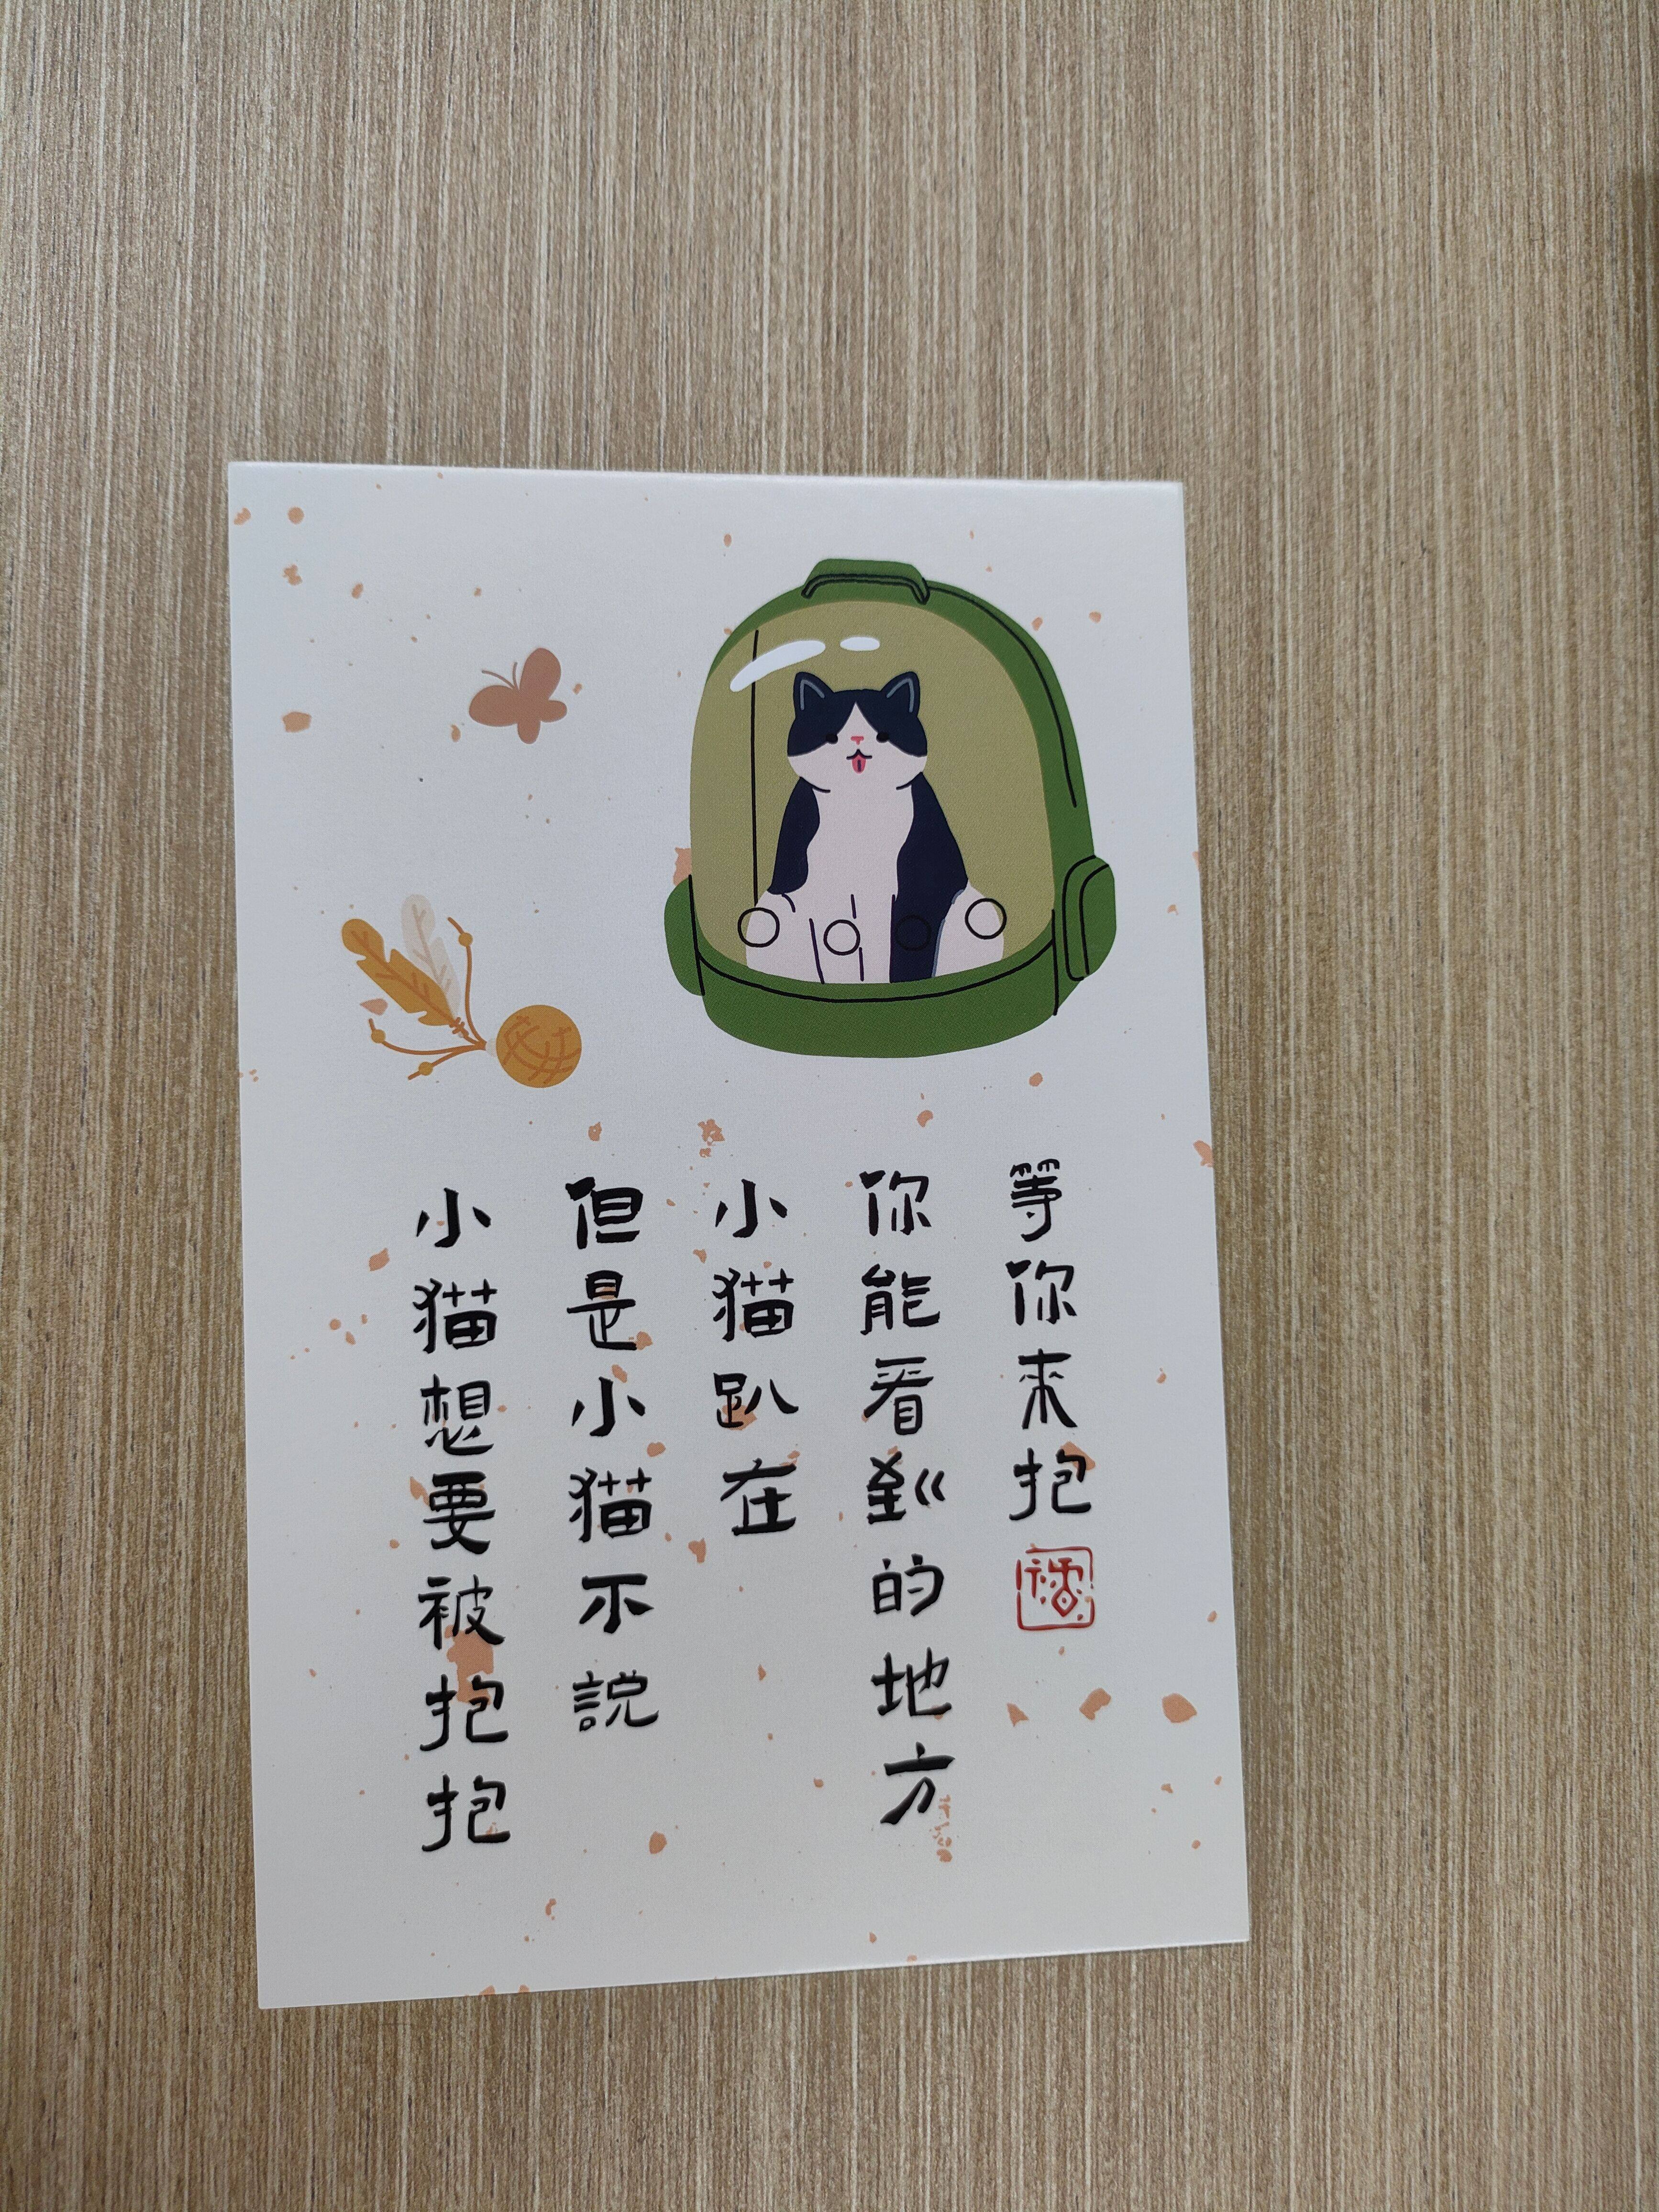 小猫想要被抱抱
但是小猫不説
小猫趴在
你能看到的地方
等你来抱